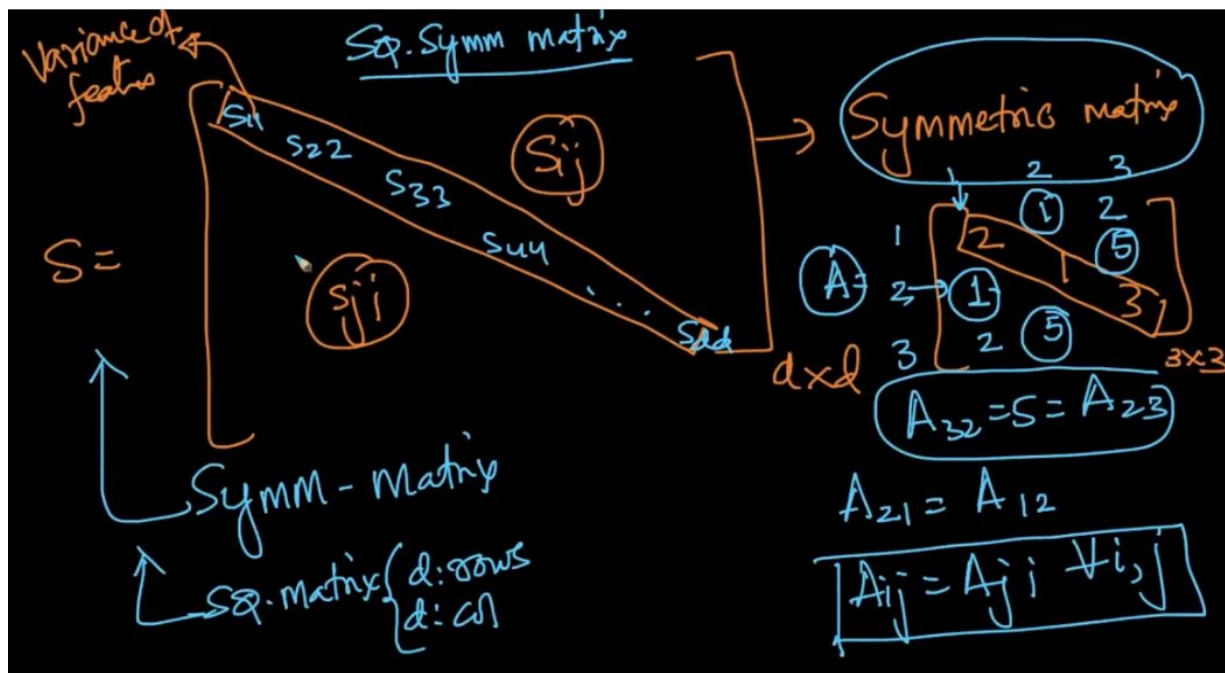 Variance of
features
Sq. Symm matrix
S =
S11
S22
S33
S44
. . .
Sdd
Sij
Sji
d×d
Symm - Matrix
SQ. matrix { d: rows
d: col
Symmetric matrix
1 2 3
A =
1 2 1 2
2 → 1 1 5
3 2 5 3
3×3
A32 = 5 = A23
A21 = A12
Aij = Aji ∀i,j